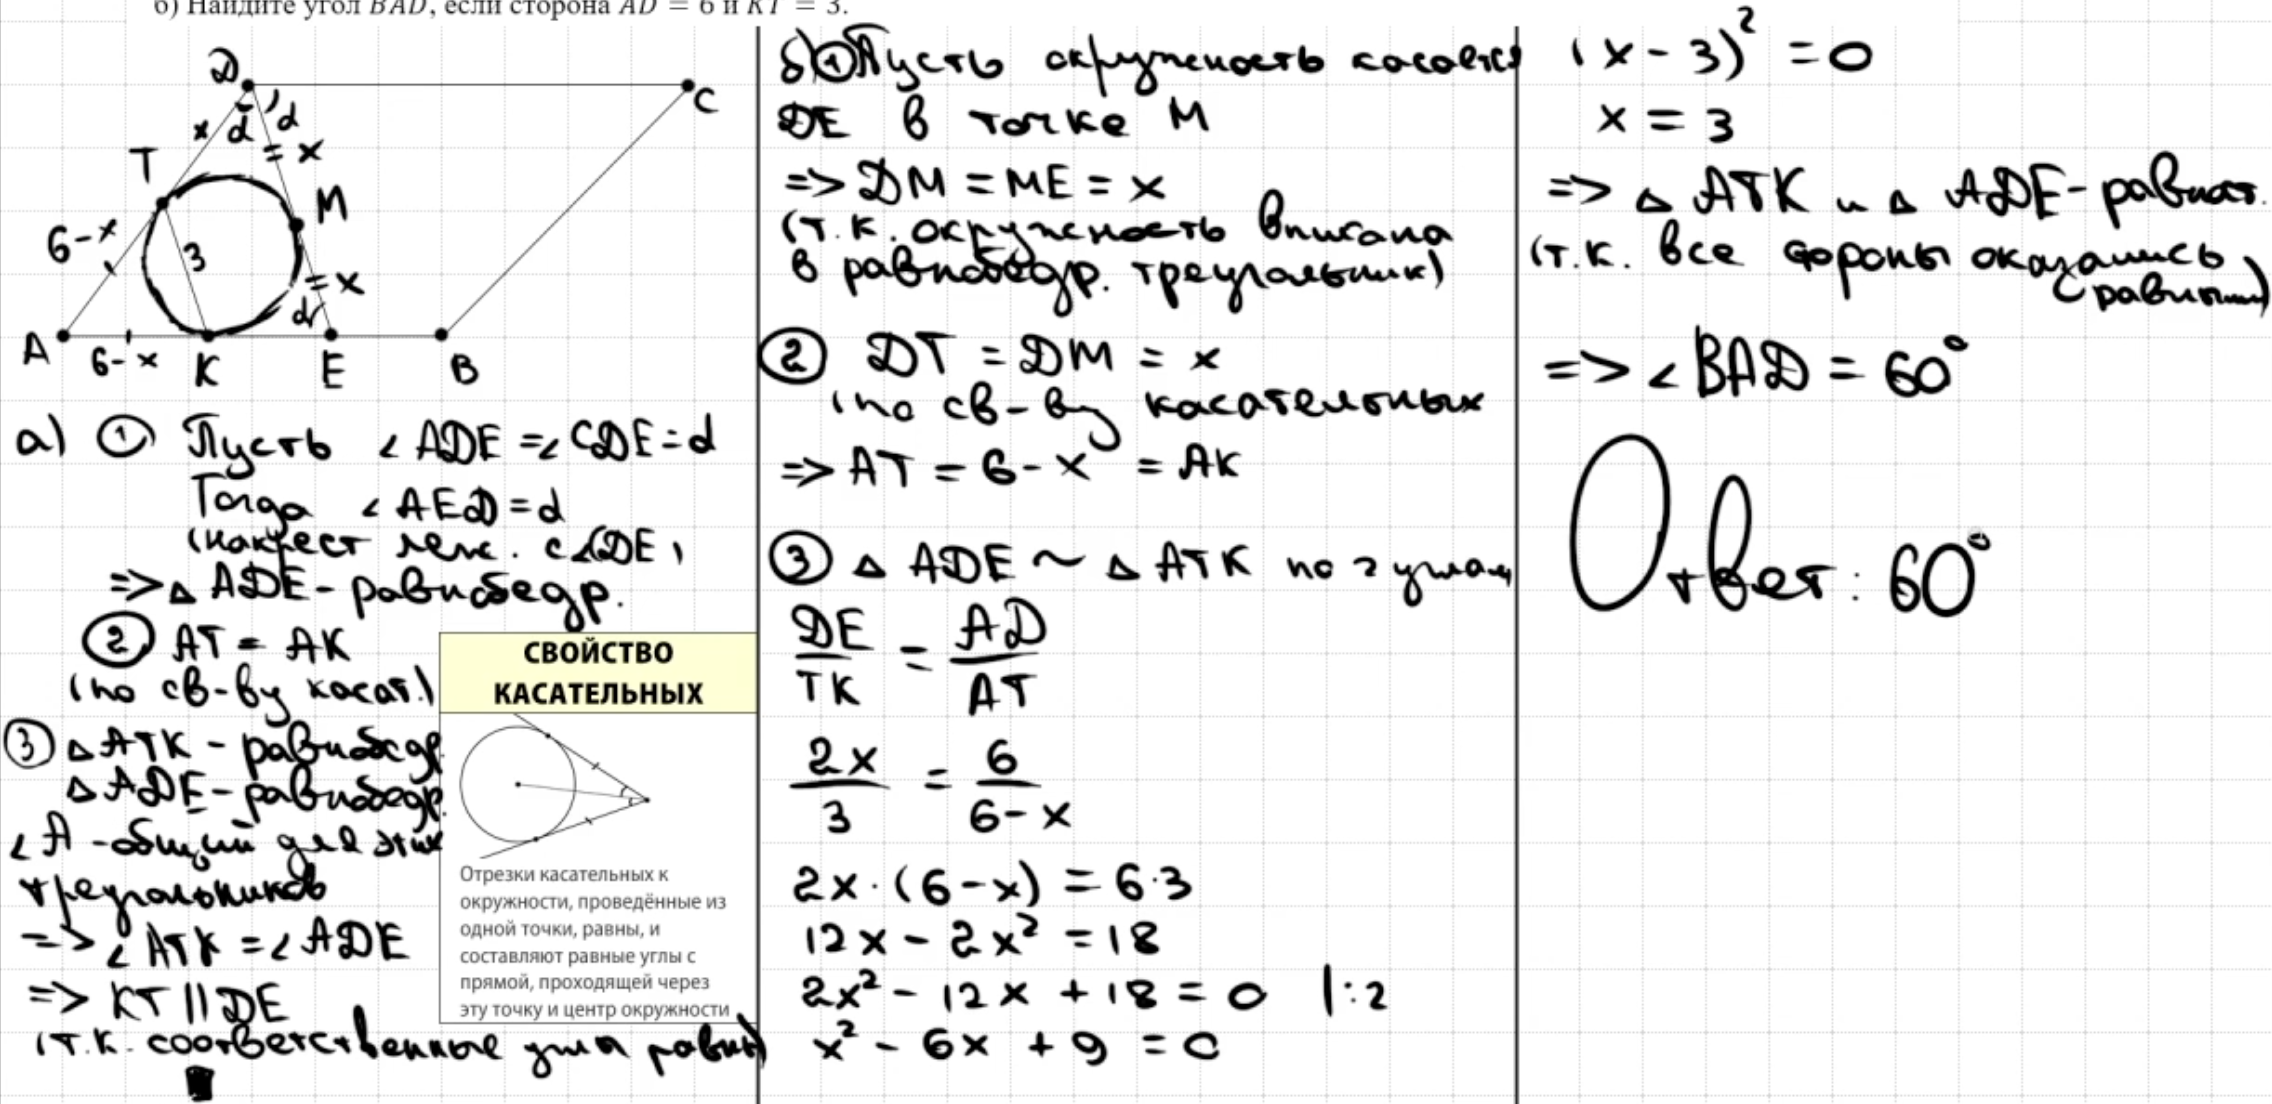 б) Найдите угол BAD, если сторона AD = 6 и KT = 3.
D
C
x
d
d
= x
T
M
6-x
3
= x
d
A
6-x
K
E
B
а) ① Пусть ∠ADE = ∠CDE = d
Тогда ∠AED = d
(накрест леж. с ∠CDE)
=> △ADE - равнобедр.
② AT = AK
(по св-ву касат.)
③ △ATK - равнобедр.
△ADE - равнобедр.
∠A - общий для этих
треугольников
=> ∠ATK = ∠ADE
=> KT || DE
(т.к. соответственные углы равны)
СВОЙСТВО
КАСАТЕЛЬНЫХ
Отрезки касательных к
окружности, проведённые из
одной точки, равны, и
составляют равные углы с
прямой, проходящей через
эту точку и центр окружности
б) ① Пусть окружность касается
DE в точке M
=> DM = ME = x
(т.к. окружность вписана
в равнобедр. треугольник)
② DT = DM = x
(по св-ву касательных
=> AT = 6 - x = AK
③ △ADE ~ △ATK по 2 углам
DE/TK = AD/AT
2x/3 = 6/(6-x)
2x·(6-x) = 6·3
12x - 2x² = 18
2x² - 12x + 18 = 0 |:2
x² - 6x + 9 = 0
(x - 3)² = 0
x = 3
=> △ATK и △ADE - равност.
(т.к. все стороны оказались
равными)
=> ∠BAD = 60°
Ответ: 60°